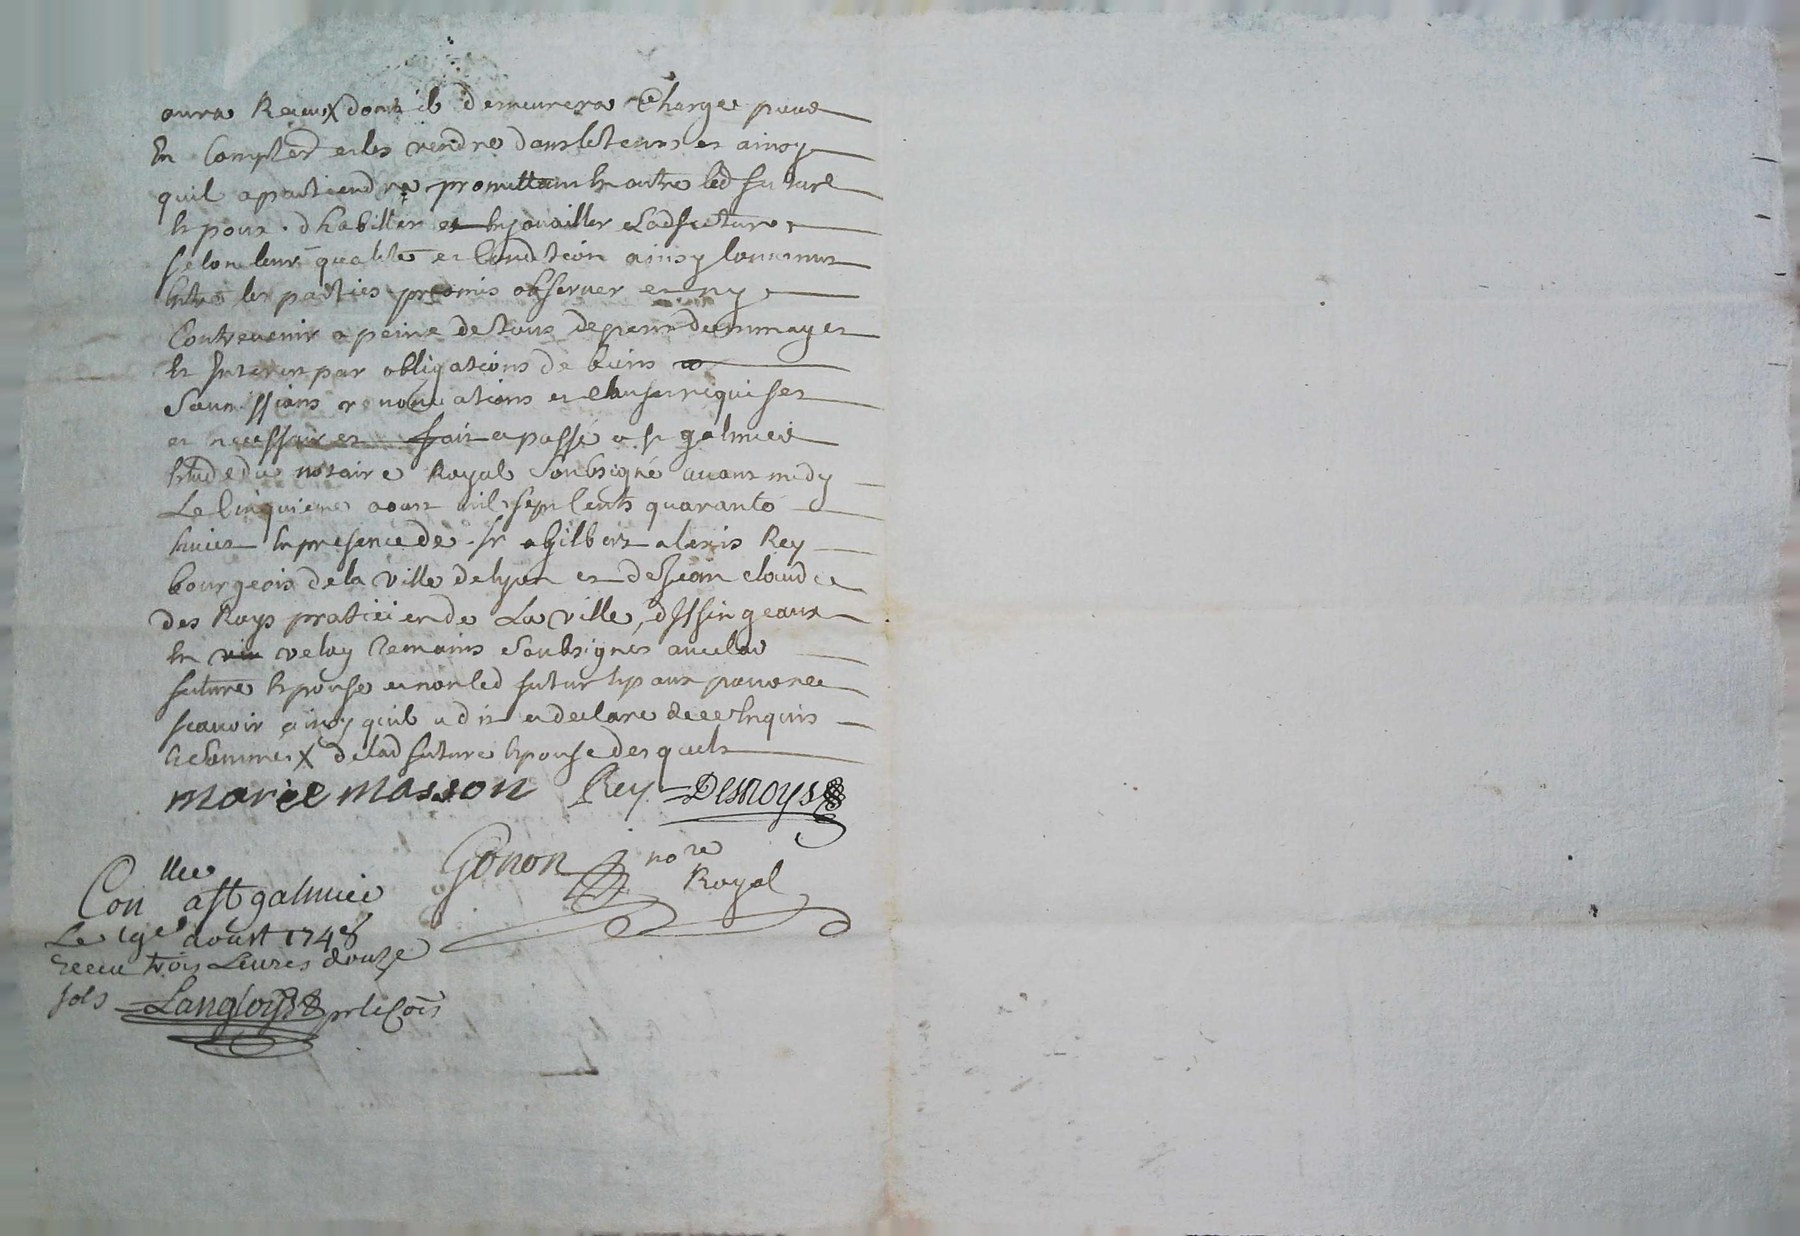 aura Receux dont il demeurera Charge pour
En Compter et les rendre dans le tems et ainsy
quil apartiendra promettant En outre led futur
Epoux d'habiller et Enjouailler Ladfuture
selon leur qualité et Condition ainsy Convenus
Entre les parties promis observer et ny
Contrevenir a peine de tous depens dommages
Et Interets par obligations de biens
Soumissions renonciations et clauses requises
et necessaires fait et passé a st galmier
Etude du notaire Royal Soubsigné avant midy
Le Cinquieme aoust mil sept Cents quarante
huict En presence de sr Gilbert alexis Rey
bourgeois de la ville de lyon et de Jean claude
des Roys praticien de La ville, dissingeaux
En velay Temoins Soubsignes avec lad
future Epouse et non led futur Epoux pour ne
scavoir ainsy quil a dit et declaré de ce Enquis
et Sommé X de lad future Epouse des quels
marie masson Rey Desroys
Gonon nore
Royal
Conllee a st galmier
Le 19e aoust 1748
receu trois Livres douze
sols Langlois pr le Cois